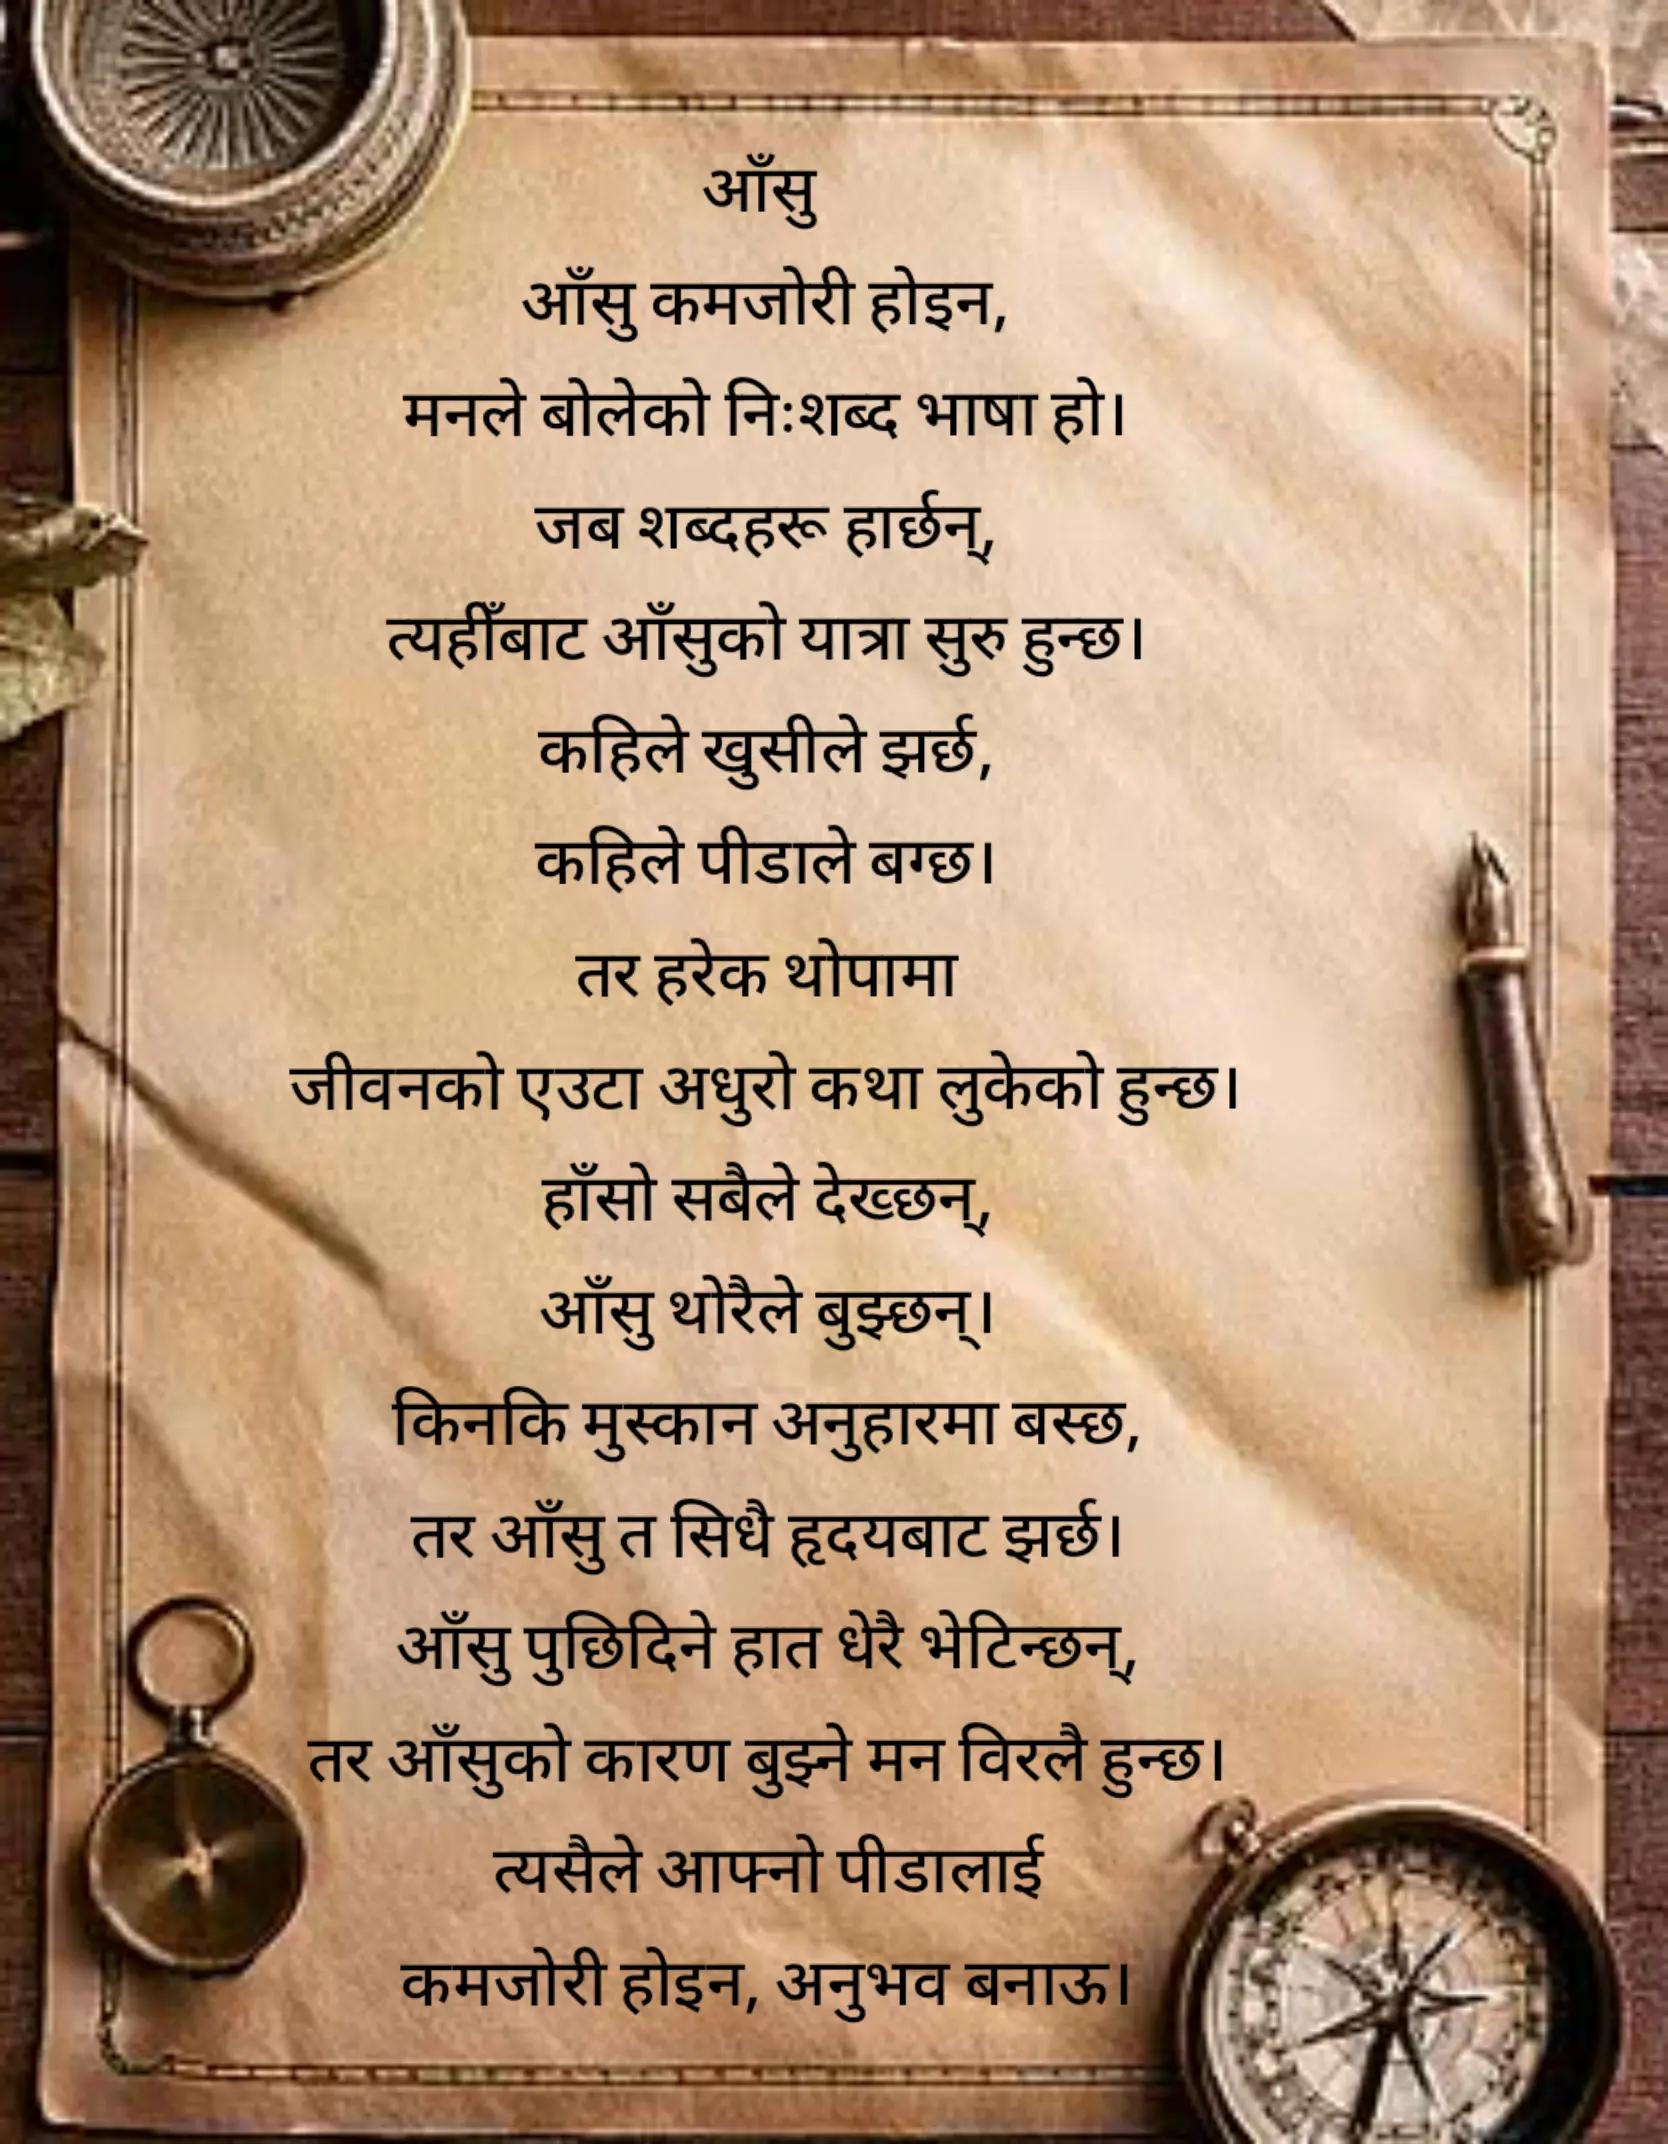 आँसु
आँसु कमजोरी होइन,
मनले बोलेको निःशब्द भाषा हो।
जब शब्दहरू हार्छन्,
त्यहीँबाट आँसुको यात्रा सुरु हुन्छ।
कहिले खुसीले झर्छ,
कहिले पीडाले बग्छ।
तर हरेक थोपामा
जीवनको एउटा अधुरो कथा लुकेको हुन्छ।
हाँसो सबैले देख्छन्,
आँसु थोरैले बुझ्छन्।
किनकि मुस्कान अनुहारमा बस्छ,
तर आँसु त सिधै हृदयबाट झर्छ।
आँसु पुछिदिने हात धेरै भेटिन्छन्,
तर आँसुको कारण बुझ्ने मन विरलै हुन्छ।
त्यसैले आफ्नो पीडालाई
कमजोरी होइन, अनुभव बनाऊ।